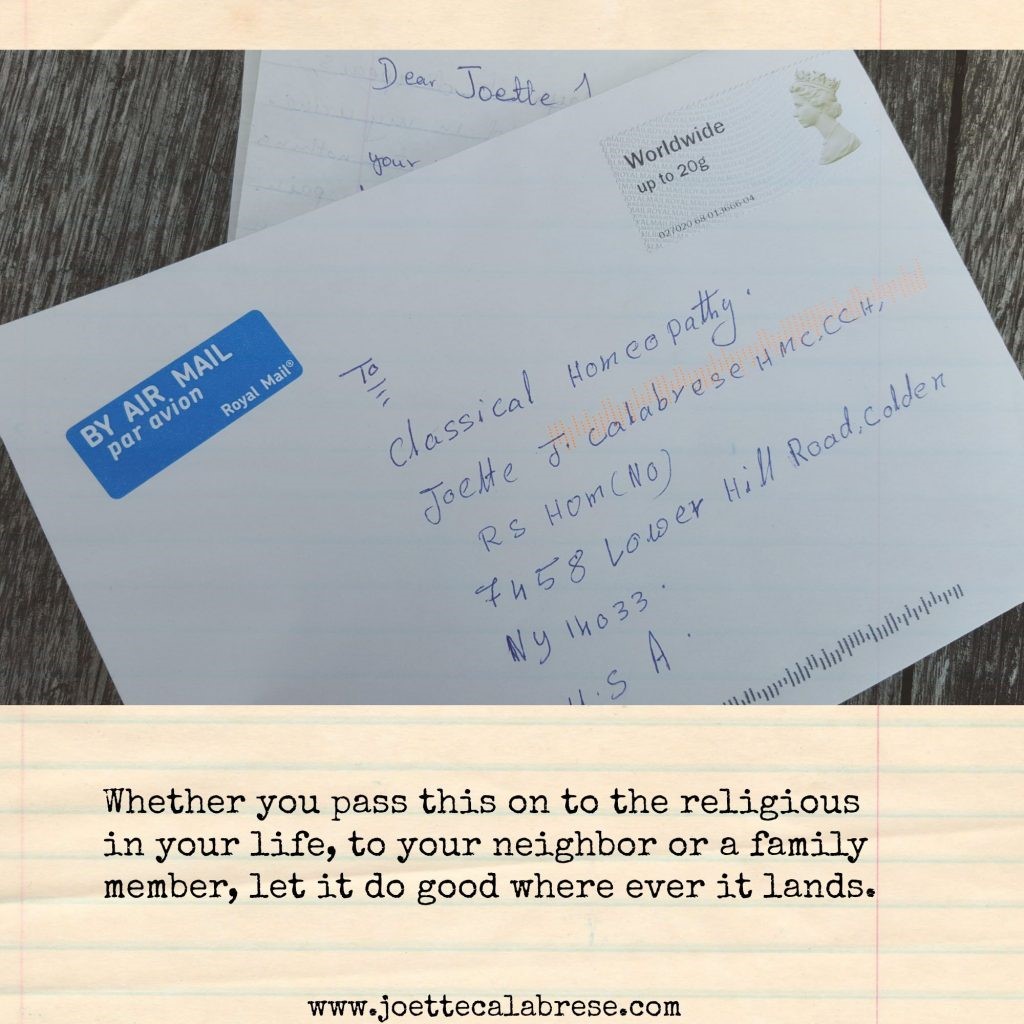 Dear Joette,
your
Worldwide
up to 20g
02/020 68 013666-04
BY AIR MAIL
par avion
Royal Mail®
To
Classical Homeopathy.
Joette J. Calabrese HMC, CCH,
RS HOM (NO)
7458 Lower Hill Road, Colden
NY 14033.
U.S A.
Whether you pass this on to the religious
in your life, to your neighbor or a family
member, let it do good where ever it lands.
www.joettecalabrese.com